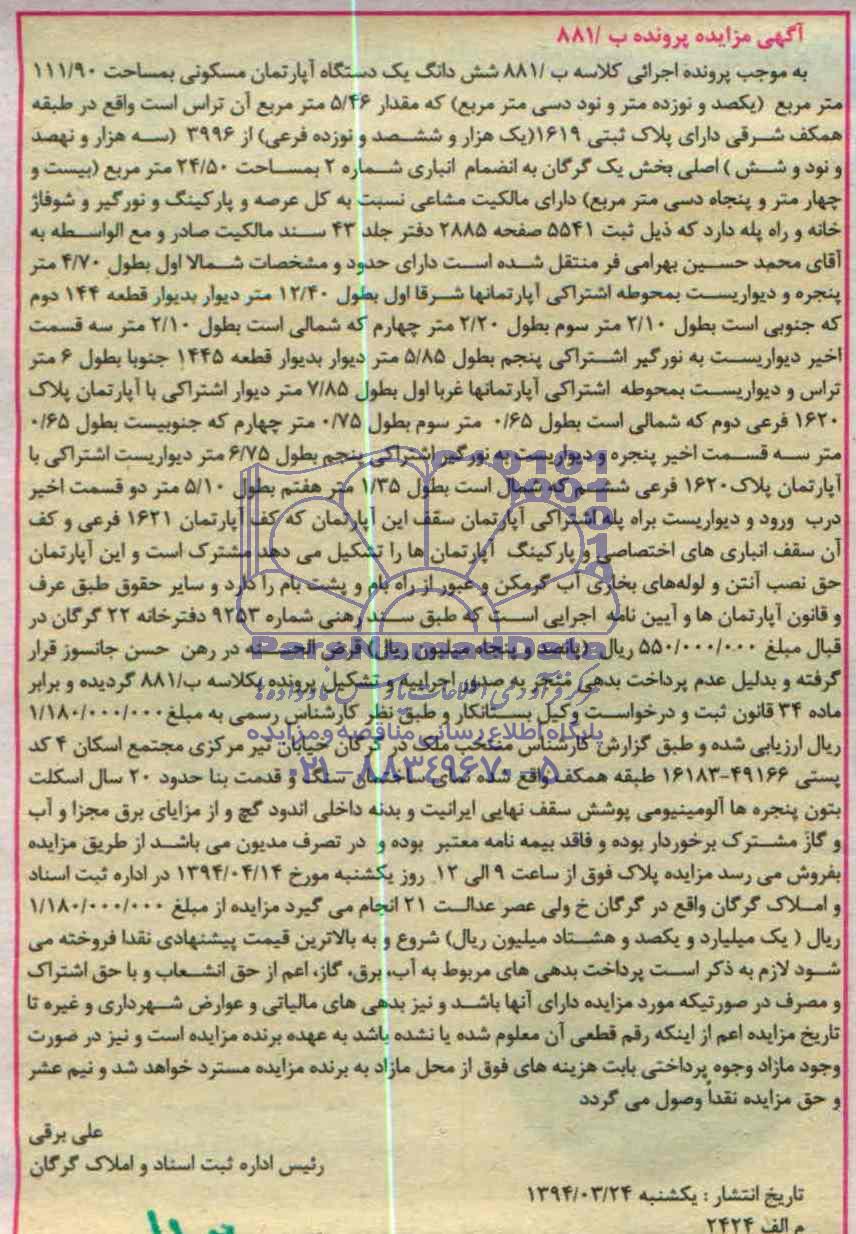 آگهی مزایده پرونده ب /۸۸۱
به موجب پرونده اجرائی کلاسه ب /۸۸۱ شش دانگ یک دستگاه آپارتمان مسکونی بمساحت ۱۱۱/۹۰
متر مربع (یکصد و نوزده متر و نود دسی متر مربع) که مقدار ۵/۴۶ متر مربع آن تراس است واقع در طبقه
همکف شرقی دارای پلاک ثبتی ۱۶۱۹(یک هزار و ششصد و نوزده فرعی) از ۳۹۹۶ (سه هزار و نهصد
و نود و شش ) اصلی بخش یک گرگان به انضمام انباری شماره ۲ بمساحت ۲۴/۵۰ متر مربع (بیست و
چهار متر و پنجاه دسی متر مربع) دارای مالکیت مشاعی نسبت به کل عرصه و پارکینگ و نورگیر و شوفاژ
خانه و راه پله دارد که ذیل ثبت ۵۵۴۱ صفحه ۲۸۸۵ دفتر جلد ۴۳ سند مالکیت صادر و مع الواسطه به
آقای محمد حسین بهرامی فر منتقل شده است دارای حدود و مشخصات شمالا اول بطول ۴/۷۰ متر
پنجره و دیواریست بمحوطه اشتراکی آپارتمانها شرقا اول بطول ۱۲/۴۰ متر دیوار بدیوار قطعه ۱۴۴ دوم
که جنوبی است بطول ۲/۱۰ متر سوم بطول ۲/۲۰ متر چهارم که شمالی است بطول ۲/۱۰ متر سه قسمت
اخیر دیواریست به نورگیر اشتراکی پنجم بطول ۵/۸۵ متر دیوار بدیوار قطعه ۱۴۴۵ جنوبا بطول ۶ متر
تراس و دیواریست بمحوطه اشتراکی آپارتمانها غربا اول بطول ۷/۸۵ متر دیوار اشتراکی با آپارتمان پلاک
۱۶۲۰ فرعی دوم که شمالی است بطول ۰/۶۵ متر سوم بطول ۰/۷۵ متر چهارم که جنوبیست بطول ۰/۶۵
متر سه قسمت اخیر پنجره و دیواریست به نورگیر اشتراکی پنجم بطول ۶/۷۵ متر دیواریست اشتراکی با
آپارتمان پلاک۱۶۲۰ فرعی ششم که شمال است بطول ۱/۳۵ متر هفتم بطول ۵/۱۰ متر دو قسمت اخیر
درب ورود و دیواریست براه پله اشتراکی آپارتمان سقف این آپارتمان که کف آپارتمان ۱۶۲۱ فرعی و کف
آن سقف انباری های اختصاصی و پارکینگ آپارتمان ها را تشکیل می دهد مشترک است و این آپارتمان
حق نصب آنتن و لوله‌های بخاری آب گرمکن و عبور از راه بام و پشت بام را دارد و سایر حقوق طبق عرف
و قانون آپارتمان ها و آیین نامه اجرایی است که طبق سند رهنی شماره ۹۲۵۳ دفترخانه ۲۲ گرگان در
قبال مبلغ ۵۵۰/۰۰۰/۰۰۰ ریال (پانصد و پنجاه میلیون ریال) قرض الحسنه در رهن حسن جانسوز قرار
گرفته و بدلیل عدم پرداخت بدهی منجر به صدور اجراییه و تشکیل پرونده بکلاسه ب/۸۸۱ گردیده و برابر
ماده ۳۴ قانون ثبت و درخواست وکیل بستانکار و طبق نظر کارشناس رسمی به مبلغ۱/۱۸۰/۰۰۰/۰۰۰
ریال ارزیابی شده و طبق گزارش کارشناس منتخب ملک در گرگان خیابان تیر مرکزی مجتمع اسکان ۴ کد
پستی ۴۹۱۶۶-۱۶۱۸۳ طبقه همکف واقع شده نمای ساختمان سنگ و قدمت بنا حدود ۲۰ سال اسکلت
بتون پنجره ها آلومینیومی پوشش سقف نهایی ایرانیت و بدنه داخلی اندود گچ و از مزایای برق مجزا و آب
و گاز مشترک برخوردار بوده و فاقد بیمه نامه معتبر بوده و در تصرف مدیون می باشد از طریق مزایده
بفروش می رسد مزایده پلاک فوق از ساعت ۹ الی ۱۲ روز یکشنبه مورخ ۱۳۹۴/۰۴/۱۴ در اداره ثبت اسناد
و املاک گرگان واقع در گرگان خ ولی عصر عدالت ۲۱ انجام می گیرد مزایده از مبلغ ۱/۱۸۰/۰۰۰/۰۰۰
ریال ( یک میلیارد و یکصد و هشتاد میلیون ریال) شروع و به بالاترین قیمت پیشنهادی نقدا فروخته می
شود لازم به ذکر است پرداخت بدهی های مربوط به آب، برق، گاز، اعم از حق انشعاب و یا حق اشتراک
و مصرف در صورتیکه مورد مزایده دارای آنها باشد و نیز بدهی های مالیاتی و عوارض شهرداری و غیره تا
تاریخ مزایده اعم از اینکه رقم قطعی آن معلوم شده یا نشده باشد به عهده برنده مزایده است و نیز در صورت
وجود مازاد وجوه پرداختی بابت هزینه های فوق از محل مازاد به برنده مزایده مسترد خواهد شد و نیم عشر
و حق مزایده نقداً وصول می گردد
علی برقی
رئیس اداره ثبت اسناد و املاک گرگان
تاریخ انتشار : یکشنبه ۱۳۹۴/۰۳/۲۴
م الف ۲۴۲۴
ParsNamadData
پایگاه اطلاع رسانی مناقصه و مزایده
۰۲۱-۸۸۳۴۹۶۷۰-۵